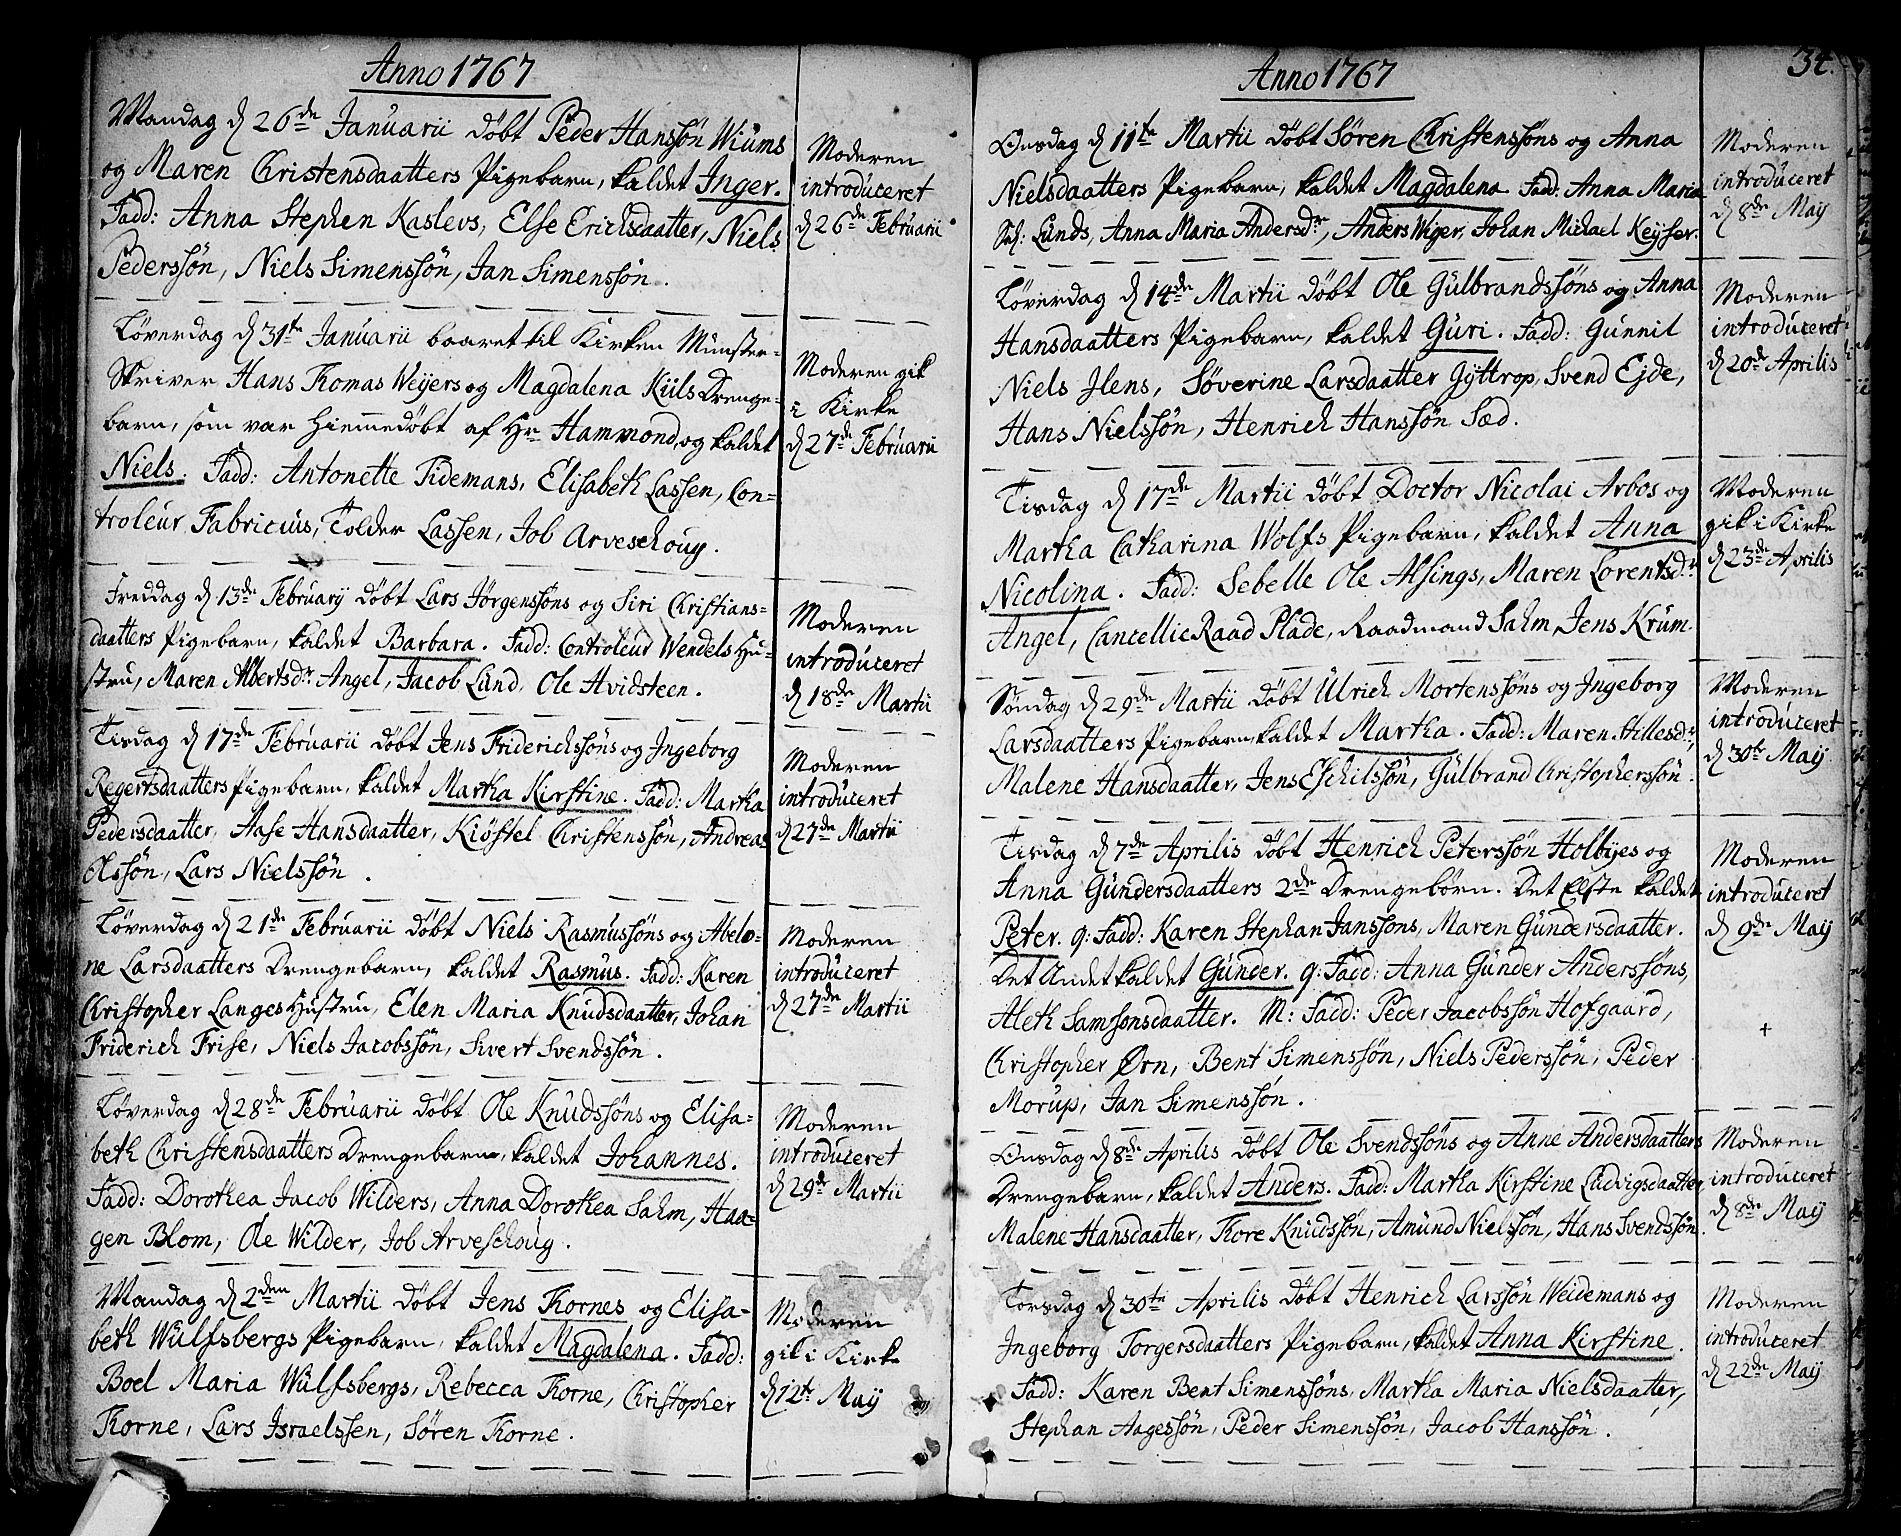 Anno 1767
Mandag d 26de Januarii döbt Peder Hanssön Wiums
og Maren Christensdaatters Pigebarn, kaldet Inger.
Fadd: Anna Stephen Kaslevs, Else Erichsdaatter, Niels
Pederssön, Niels Simenssön, Jan Simenssön.
Moderen
introduceret
d 26de Februarii
Löverdag d 31te Januarii baaret til Kirken Münster-
Skriver Hans Thomas Weyers og Magdalena Kiils Drenge-
barn, som var hiemmedöbt af Hr Hammond, og kaldet
Niels. Fadd: Antonette Tidemans, Elisabeth Lassen, Con-
troleur Fabricius, Tolder Lassen, Job Arveschoug.
Moderen gik
i Kirke
d 27de Februarii
Freddag d 13de February döbt Lars Jörgenssöns og Siri Christians-
daatters Pigebarn, kaldet Barbara. Fadd: Controleur Wendels Hu-
stru, Maren Albertsdr Angel, Jacob Lund, Ole Hvidsteen.
Moderen
introduceret
d 18de Martii
Tisdag d 17de Februarii döbt Jens Friderichssöns og Ingeborg
Regertsdaatters Pigebarn, kaldet Martha Kirstine. Fadd: Martha
Pedersdaatter, Aase Hansdaatter, Kiöstel Christenssön, Andreas
Olssön, Lars Nielssön.
Moderen
introduceret
d 27de Martii
Löverdag d 21de Februarii döbt Niels Rasmussöns og Abelo-
ne Larsdaatters Drengebarn, kaldet Rasmus. Fadd: Karen
Christopher Langes Hustru, Elen Maria Knudsdaatter, Johan
Friderich Frise, Niels Jacobssön, Sivert Svendssön.
Moderen
introduceret
d 27de Martii
Löverdag d 28de Februarii döbt Ole Knudssöns og Elisa-
beth Christensdaatters Drengebarn, kaldet Johannes.
Fadd: Dorothea Jacob Wilders, Anna Dorothea Sahm, Haa-
gen Blom, Ole Wilder, Job Arveschoug.
Moderen
introduceret
d 29de Martii
Mandag d 2den Martii döbt Jens Thornes og Elisa-
beth Wulfsbergs Pigebarn, kaldet Magdalena. Fadd:
Boel Maria Wulfsbergs, Rebecca Thorne, Christopher
Thorne, Lars Israelssen, Sören Thorne.
Moderen
gik i Kirke
d 12te Maij
34.
Anno 1767
Onsdag d 11te Martii döbt Sören Christenssöns og Anna
Nielsdaatters Pigebarn, kaldet Magdalena. Fadd: Anna Maria
Sal: Lunds, Anna Maria Andersdr, Anders Wiger, Johan Michael Keyser.
Moderen
introduceret
d 8de Maij
Löverdag d 14de Martii döbt Ole Gulbrandssöns og Anna
Hansdaatters Pigebarn, kaldet Guri. Fadd: Gunnil
Niels Ilens, Söverine Larsdaatter Gyttrop, Svend Ejde,
Hans Nielssön, Henrich Hanssön Sæd.
Moderen
introduceret
d 20de Aprilis
Tisdag d 17de Martii döbt Doctor Nicolai Arbos og
Martha Catharina Wolfs Pigebarn, kaldet Anna
Nicolina. Fadd: Sebelle Ole Alsings, Maren Lorentsdr
Angel, CancellieRaad Plade, Raadmand Sahm, Jens Krum.
Moderen
gik i Kirke
d 23de Aprilis
Söndag d 29de Martii döbt Ulrich Mortenssöns og Ingeborg
Larsdaatters Pigebarn, kaldet Martha. Fadd: Maren Hillesdr,
Malene Hansdaatter, Jens Eschilssön, Gulbrand Christopherssön.
Moderen
introduceret
d 30te Maij
Tisdag d 7de Aprilis döbt Henrich Peterssön Holbyes og
Anna Gundersdaatters 2de Drengebörn. Det Elste kaldet
Peter. q: Fadd: Karen Stephan Janssöns, Maren Gundersdaatter.
Det Andet kaldet Gunder. q: Fadd: Anna Gunder Anderssöns,
Aleth Samsonsdaatter. M: Fadd: Peder Jacobssön Hofgaard,
Christopher Ørn, Bent Simenssön, Niels Pederssön, Peder
Morup, Jan Simenssön.
Moderen
introduceret
d 9de Maij
+
Onsdag d 8de Aprilis döbt Ole Svendssöns og Anne Andersdaatters
Drengebarn, kaldet Anders. Fadd: Martha Kirstine Ludvigsdaatter,
Malene Hansdaatter, Thore Knudssön, Amund Nielssön, Hans Svendssön.
Moderen
introduceret
d 8de Maij
Torsdag d 30te Aprilis döbt Henrich Larssön Weidemans og
Ingeborg Torgersdaatters Pigebarn, kaldet Anna Kirstine.
Fadd: Karen Bent Simenssöns, Martha Maria Nielsdaatter,
Stephan Aagessön, Peder Simenssön, Jacob Hanssön.
Moderen
introduceret
d 22de Maij